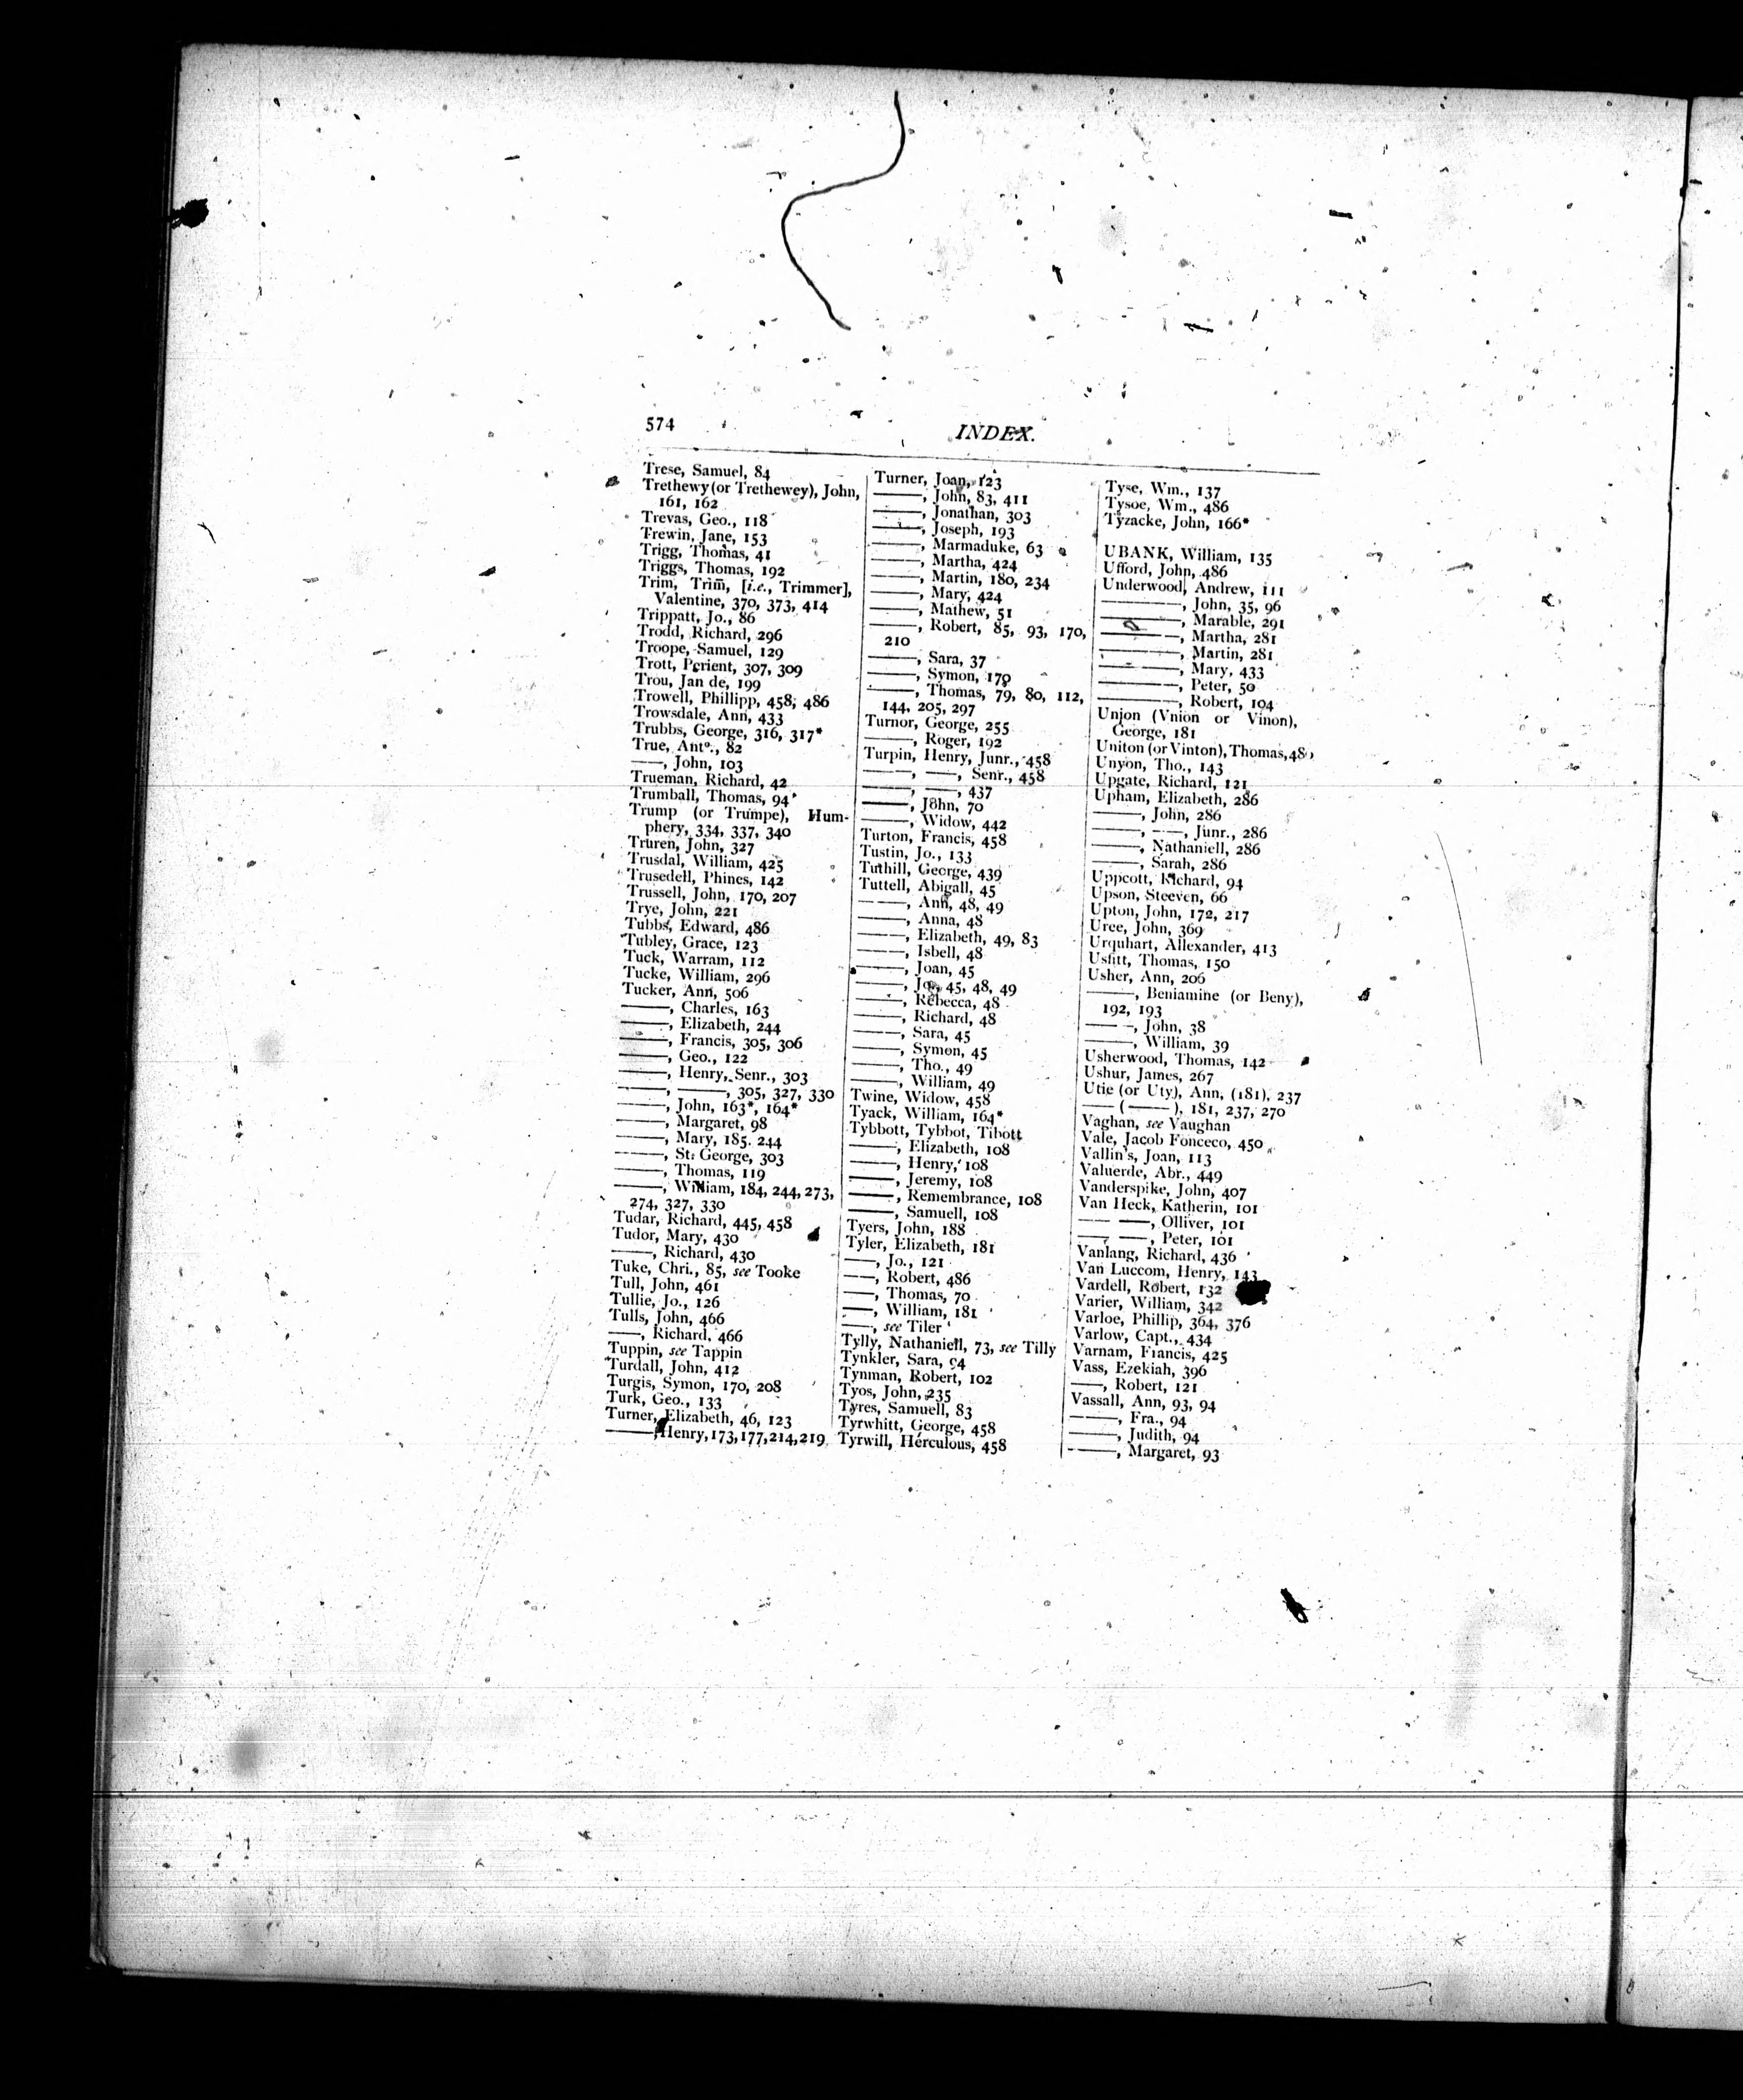 574
INDEX.
Trese, Samuel, 84
Trethewy (or Trethewey), John,
161, 162
Trevas, Geo., 118
Trewin, Jane, 153
Trigg, Thomas, 41
Triggs, Thomas, 192
Trim, Trim̄, [i.e., Trimmer],
Valentine, 370, 373, 414
Trippatt, Jo., 86
Trodd, Richard, 296
Troope, Samuel, 129
Trott, Perient, 307, 309
Trou, Jan de, 199
Trowell, Phillipp, 458, 486
Trowsdale, Ann, 433
Trubbs, George, 316, 317*
True, Anto., 82
——, John, 103
Trueman, Richard, 42
Trumball, Thomas, 94
Trump (or Trumpe), Hum-
phery, 334, 337, 340
Truren, John, 327
Trusdal, William, 425
Trusedell, Phines, 142
Trussell, John, 170, 207
Trye, John, 221
Tubbs, Edward, 486
Tubley, Grace, 123
Tuck, Warram, 112
Tucke, William, 296
Tucker, Ann, 506
——, Charles, 163
——, Elizabeth, 244
——, Francis, 305, 306
——, Geo., 122
——, Henry, Senr., 303
——, ——, 305, 327, 330
——, John, 163*, 164*
——, Margaret, 98
——, Mary, 185. 244
——, St. George, 303
——, Thomas, 119
——, William, 184, 244, 273,
274, 327, 330
Tudar, Richard, 445, 458
Tudor, Mary, 430
——, Richard, 430
Tuke, Chri., 85, see Tooke
Tull, John, 461
Tullie, Jo., 126
Tulls, John, 466
——, Richard, 466
Tuppin, see Tappin
Turdall, John, 412
Turgis, Symon, 170, 208
Turk, Geo., 133
Turner, Elizabeth, 46, 123
——, Henry, 173, 177, 214, 219
Turner, Joan, 123
——, John, 83, 411
——, Jonathan, 303
——, Joseph, 193
——, Marmaduke, 63
——, Martha, 424
——, Martin, 180, 234
——, Mary, 424
——, Mathew, 51
——, Robert, 85, 93, 170,
210
——, Sara, 37
——, Symon, 170
——, Thomas, 79, 80, 112,
144, 205, 297
Turnor, George, 255
——, Roger, 192
Turpin, Henry, Junr., 458
——, ——, Senr., 458
——, ——, 437
——, John, 70
——, Widow, 442
Turton, Francis, 458
Tustin, Jo., 133
Tuthill, George, 439
Tuttell, Abigall, 45
——, Ann, 48, 49
——, Anna, 48
——, Elizabeth, 49, 83
——, Isbell, 48
——, Joan, 45
——, Jo., 45, 48, 49
——, Rebecca, 48
——, Richard, 48
——, Sara, 45
——, Symon, 45
——, Tho., 49
——, William, 49
Twine, Widow, 458
Tyack, William, 164*
Tybbott, Tybbot, Tibott
——, Elizabeth, 108
——, Henry, 108
——, Jeremy, 108
——, Remembrance, 108
——, Samuell, 108
Tyers, John, 188
Tyler, Elizabeth, 181
——, Jo., 121
——, Robert, 486
——, Thomas, 70
——, William, 181
——, see Tiler
Tylly, Nathaniell, 73, see Tilly
Tynkler, Sara, 94
Tynman, Robert, 102
Tyos, John, 235
Tyres, Samuell, 83
Tyrwhitt, George, 458
Tyrwill, Herculous, 458
Tyse, Wm., 137
Tysoe, Wm., 486
Tyzacke, John, 166*
UBANK, William, 135
Ufford, John, 486
Underwood, Andrew, 111
——, John, 35, 96
——, Marable, 291
——, Martha, 281
——, Martin, 281
——, Mary, 433
——, Peter, 50
——, Robert, 104
Union (Vnion or Vinon),
George, 181
Uniton (or Vinton), Thomas,
Unyon, Tho., 143
Upgate, Richard, 121
Upham, Elizabeth, 286
——, John, 286
——, ——, Junr., 286
——, Nathaniell, 286
——, Sarah, 286
Uppcott, Richard, 94
Upson, Steeven, 66
Upton, John, 172, 217
Uree, John, 369
Urquhart, Allexander, 413
Usfitt, Thomas, 150
Usher, Ann, 206
——, Beniamine (or Beny),
192, 193
——, John, 38
——, William, 39
Usherwood, Thomas, 142
Ushur, James, 267
Utie (or Uty), Ann, (181), 237
—— (——), 181, 237, 270
Vaghan, see Vaughan
Vale, Jacob Fonceco, 450
Vallin's, Joan, 113
Valuerde, Abr., 449
Vanderspike, John, 407
Van Heck, Katherin, 101
—— ——, Olliver, 101
——, ——, Peter, 101
Vanlang, Richard, 436
Van Luccom, Henry, 143
Vardell, Robert, 132
Varier, William, 342
Varloe, Phillip, 364, 376
Varlow, Capt., 434
Varnam, Francis, 425
Vass, Ezekiah, 396
——, Robert, 121
Vassall, Ann, 93, 94
——, Fra., 94
——, Judith, 94
——, Margaret, 93